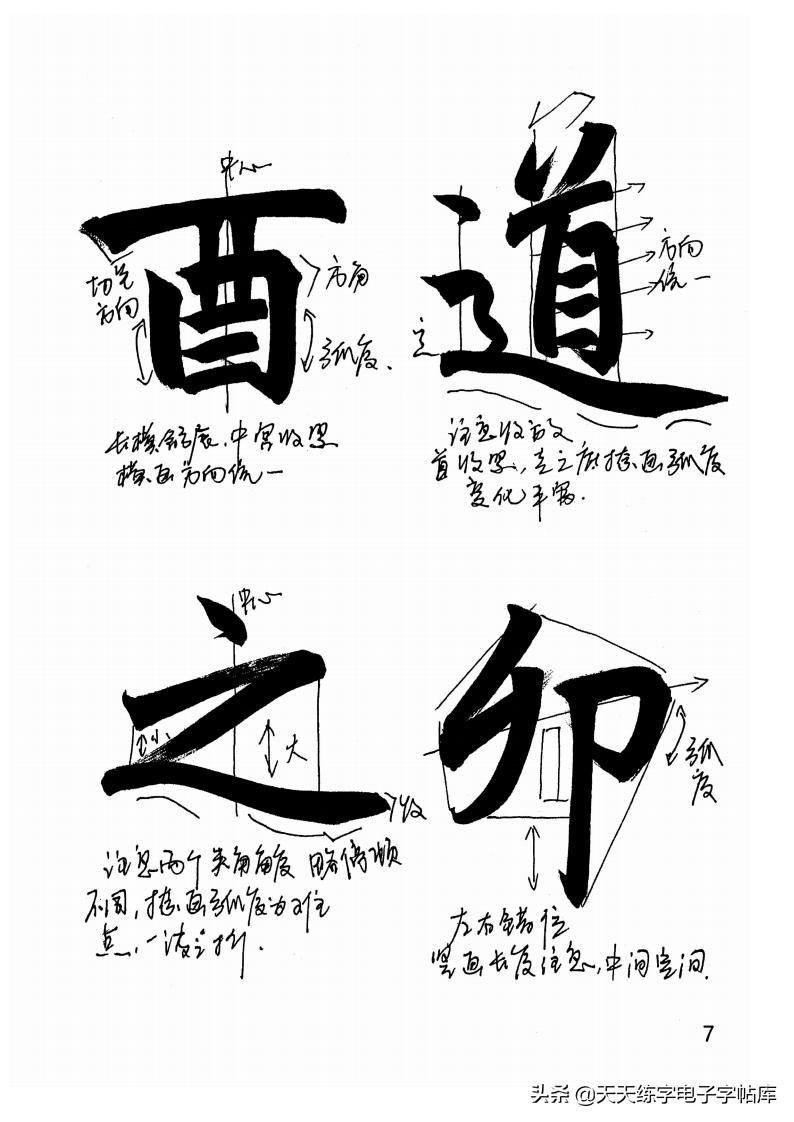 中心
酉
切笔
方向
方角
弧度.
长横舒展.中宫收紧
横画方向统一
道
方向
统一
注意收放
首收紧,走之底捺画弧度
变化丰富.
中心
之
小
大
收
注意两个夹角角度 略停顿
不同,捺画弧度为难
点,一波三折.
卯
弧
度
左右错位
竖画长度注意,中间空间.
7
头条 @天天练字电子字帖库